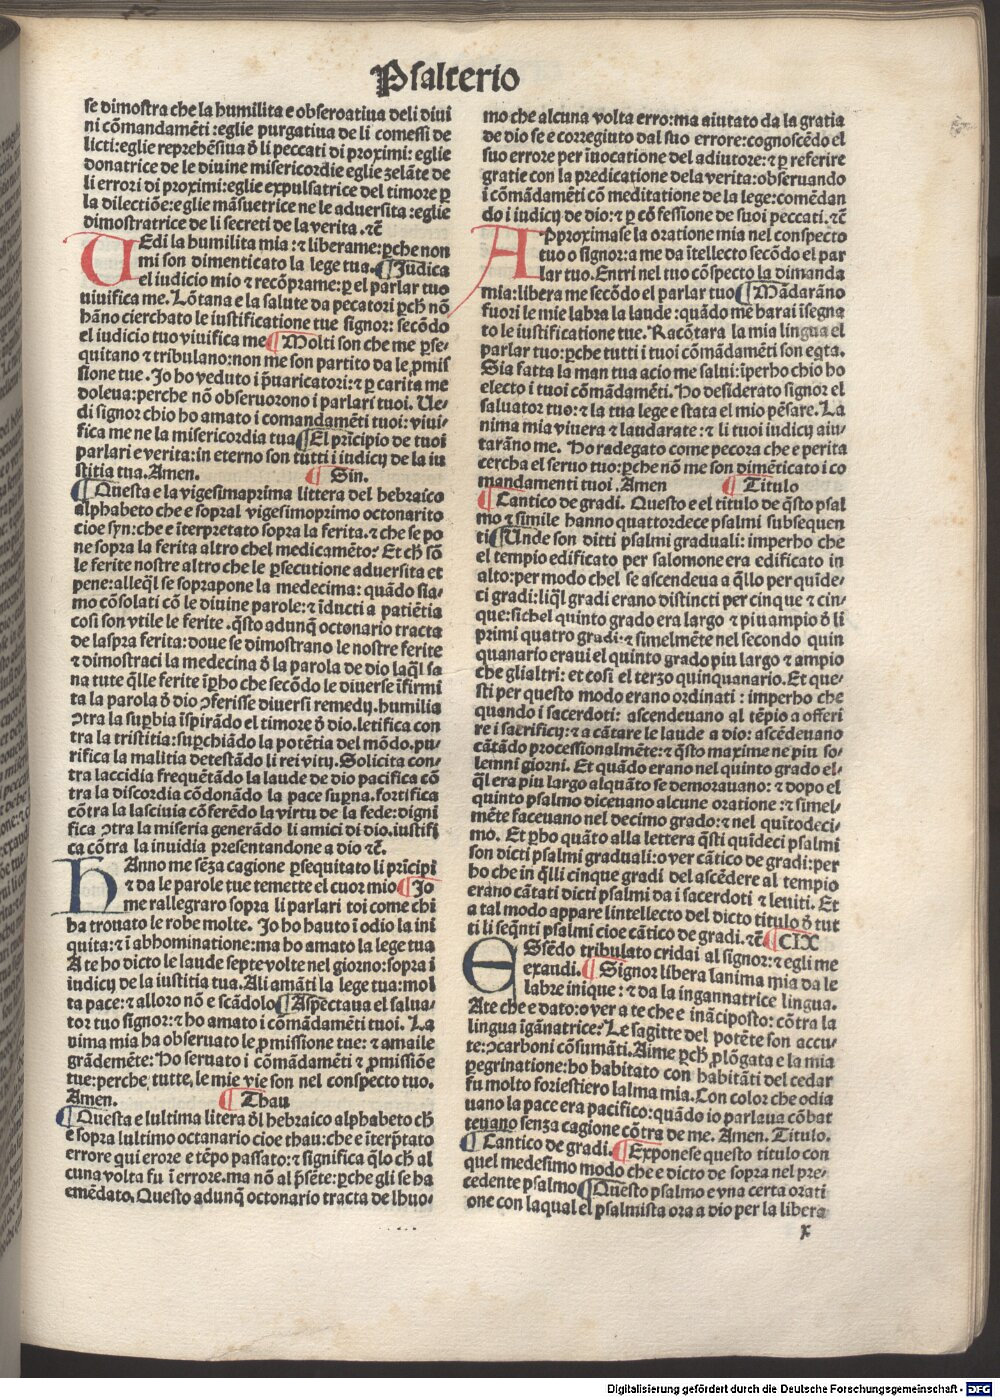 Psalterio
se dimostra che la humilita e obseroatiua deli diui
ni cõmandamẽti :eglie purgatiua de li comessi de
licti:eglie reprehẽsiua ð li peccati di proximi: eglie
donatrice de le diuine misericordie eglie zelãte de
li errori di proximi:eglie expulsatrice del timore ꝑ
la dilectiõe:eglie mãsuetrice ne le aduersita :eglie
dimostratrice de li secreti de la verita .⁊c̃
UEdi la humilita mia:⁊ liberame:ꝑche non
mi son dimenticato la lege tua.¶Judica
el iudicio mio ⁊ recõprame:ꝑ el parlar tuo
viuifica me. Lõtana e la salute da pecatori ꝑch̃ nõ
hãno cierchato le iustificatione tue signor: secõdo
el iudicio tuo viuifica me¶Molti son che me ꝑse⸗
quitano ⁊ tribulano:non me son partito da le ꝓmis
sione tue . Jo ho veduto i p̃uaricatori:⁊ ꝑ carita me
doleua:perche nõ obseruorono i parlari tuoi. Ue⸗
di signor chio ho amato i comandamẽti tuoi: viui⸗
fica me ne la misericordia tua¶El prĩcipio de tuoi
parlari e verita:in eterno son tutti i iudicij de la iu
stitia tua.Amen. ¶ Sin.
¶Questa e la vigesimaprima littera del hebraico
alphabeto che e sopral vigesimoprimo octonarito
cioe syn:che e ĩterpretato sopra la ferita.⁊ che se po
ne sopra la ferita altro chel medicamẽto? Et ch̃ sõ
le ferite nostre altro che le ꝑsecutione aduersita et
pene:alleq̃l se soprapone la medecina: quãdo sia⸗
mo cõsolati cõ le diuine parole:⁊ ĩducti a patiẽtia
cosi son vtile le ferite .q̃sto adunq̃ octonario tracta
de laspra ferita:doue se dimostrano le nostre ferite
⁊ dimostraci la medecina ð la parola de dio laq̃l sa
na tute q̃lle ferite ĩꝑho che secõdo le diuerse ĩfirmi
ta la parola ð dio ꝯferisse diuersi remedij.humilia
ꝯtra la suꝑbia ĩspirãdo el timore ð dio.letifica con
tra la tristitia:suꝑchiãdo la potẽtia del mõdo.pu⸗
rifica la malitia detestãdo li rei vitij.Solicita con⸗
tra laccidia frequẽtãdo la laude de dio pacifica cõ
tra la discordia cõdonãdo la pace suꝑna.fortifica
cõtra la lasciuia cõferẽdo la virtu de la fede:digni
fica ꝯtra la miseria generãdo li amici di dio.iustifi
ca cõtra la inuidia presentandone a dio ⁊c̃.
hAnno me sẽza cagione ꝑsequitato li prĩcipi
⁊ da le parole tue temette el cuor mio¶Jo
me rallegraro sopra li parlari toi come chi
ha trouato le robe molte. Jo ho hauto ĩ odio la ini
quita:⁊ ĩ abhominatione:ma ho amato la lege tua
A te ho dicto le laude septe volte nel giorno:sopra i
iudicij de la iustitia tua.Ali amãti la lege tua:mol
ta pace:⁊ alloro nõ e scãdolo¶Aspectaua el salua⸗
tor tuo signor:⁊ ho amato i cõmãdamẽti tuoi. La
nima mia ha obseruato le ꝓmissione tue: ⁊ amaile
grãdemẽte: ho seruato i cõmãdamẽti ⁊ ꝓmissiõe
tue:perche tutte le mie vie son nel conspecto tuo.
Amen. ¶Thau
¶Questa e lultima litera ðl hebraico alphabeto ch̃
e sopra lultimo octanario cioe thau:che e ĩterp̃tato
errore qui erore e tẽpo passato:⁊ significa q̃lo ch̃ al
cuna volta fu ĩ errore.ma nõ al p̃sẽte:ꝑche gli se ha
emẽdato. Questo adunq̃ octonario tracta de lhuo⸗
mo che alcuna volta erro:ma aiutato da la gratia
de dio se e corregiuto dal suo errore:cognoscẽdo el
suo errore per ĩuocatione del adiutore:⁊ ꝑ referire
gratie con la predicatione de la verita:obseruando
i cõmãdamẽti cõ meditatione de la lege:comẽdan
do i iudicij de dio:⁊ ꝑ cõfessione de suoi peccati.⁊c̃
APproximase la oratione mia nel conspecto
tuo o signor:a me da ĩtellecto secõdo el par
lar tuo. Entri nel tuo cõspecto la dimanda
mia:libera me secõdo el parlar tuo¶Mãdarãno
fuori le mie labra la laude: quãdo me harai ĩsegna
to le iustificatione tue. Racõtara la mia lingua el
parlar tuo:ꝑche tutti i tuoi cõmãdamẽti son eq̃ta.
Sia fatta la man tua acio me salui:ĩperho chio ho
electo i tuoi cõmãdamẽti. ho desiderato signor el
saluator tuo:⁊ la tua lege e stata el mio pẽsare. La
nima mia viuera ⁊ laudarate:⁊ li tuoi iudicij aiu⸗
tarãno me. ho radegato come pecora che e perita
cercha el seruo tuo:ꝑche nõ me son dimẽticato i co
mandamenti tuoi .Amen ¶Titulo
¶Cantico de gradi. Questo e el titulo de q̃sto psal
mo ⁊ simile hanno quattordece psalmi subsequen
ti¶Unde son ditti psalmi graduali: imperho che
el tempio edificato per salomone era edificato in
alto:per modo chel se ascendeua a q̃llo per quĩde⸗
ci gradi:liq̃l gradi erano distincti per cinque ⁊ cin⸗
que:sichel quinto grado era largo ⁊ piu ampio ð li
primi quatro gradi.⁊ simelmẽte nel secondo quin
quanario eraui el quinto grado piu largo ⁊ ampio
che glialtri: et cosi el terzo quinquanario. Et que⸗
sti per questo modo erano ordinati : imperho che
quando i sacerdoti: ascendeuano al tẽpio a offeri
re i sacrificij:⁊ a cãtare le laude a dio: ascẽdeuano
cãtãdo processionalmẽte:⁊ q̃sto maxime ne piu so⸗
lemni giorni. Et quãdo erano nel quinto grado el⸗
q̃l era piu largo alquãto se demorauano: ⁊ dopo el
quinto psalmo diceuano alcune oratione :⁊ simel⸗
mẽte faceuano nel decimo grado:⁊ nel quĩtodeci⸗
mo. Et ꝑho quãto alla lettera q̃sti quĩdeci psalmi
son dicti psalmi graduali:o ver cãtico de gradi:per
ho che in q̃lli cinque gradi del ascẽdere al tempio
erano cãtati dicti psalmi da i sacerdoti ⁊ leuiti. Et
a tal modo appare lintellecto del dicto titulo ð tut
ti li seq̃nti psalmi cioe cãtico de gradi.⁊c̃ ¶CIX
ESsẽdo tribulato cridai al signor:⁊ egli me
exaudi.¶Signor libera lanima mia da le
labre inique :⁊ da la ingannatrice lingua.
Ate che e dato:o ver a te che e inãciposto: cõtra la
lingua ĩgãnatrice? Le sagitte del potẽte son accu⸗
te:ꝯcarboni cõsumãti.Aime ꝑch̃ ꝓlõgata e la mia
ꝑegrinatione:ho habitato con habitãti del cedar
fu molto foriestiero lalma mia.Con color che odia
uano la pace era pacifico:quãdo io parlaua cõbat
teuano senza cagione cõtra de me. Amen. Titulo.
¶Cantico de gradi.¶Exponese questo titulo con
quel medesimo modo che e dicto de sopra nel pre⸗
cedente psalmo¶Questo psalmo e vna certa orati
one con laqual el psalmista ora a dio per la libera
x
Digitalisierung gefördert durch die Deutsche Forschungsgemeinschaft - DFG